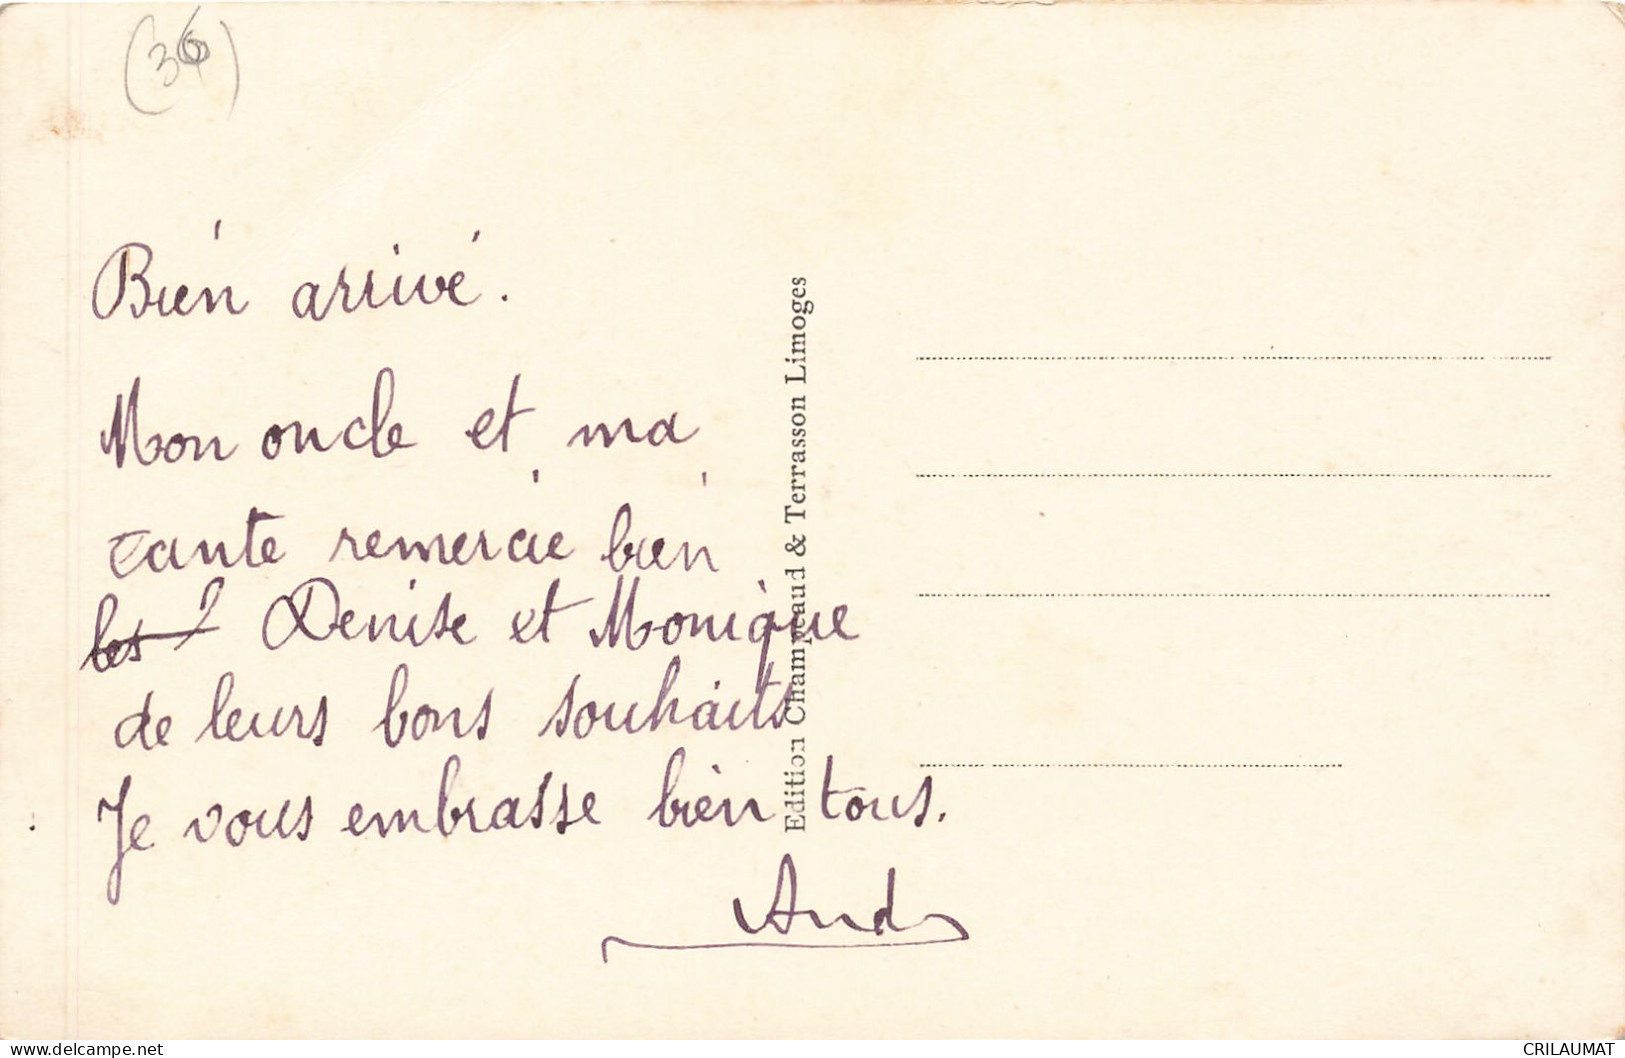 (36)
Bien arrivé.
Mon oncle et ma
tante remercie bien
les Denise et Monique
de leurs bons souhaits
Je vous embrasse bien tous.
Edition Champeaud & Terrasson Limoges
delcampe.net
CRILAUMAT